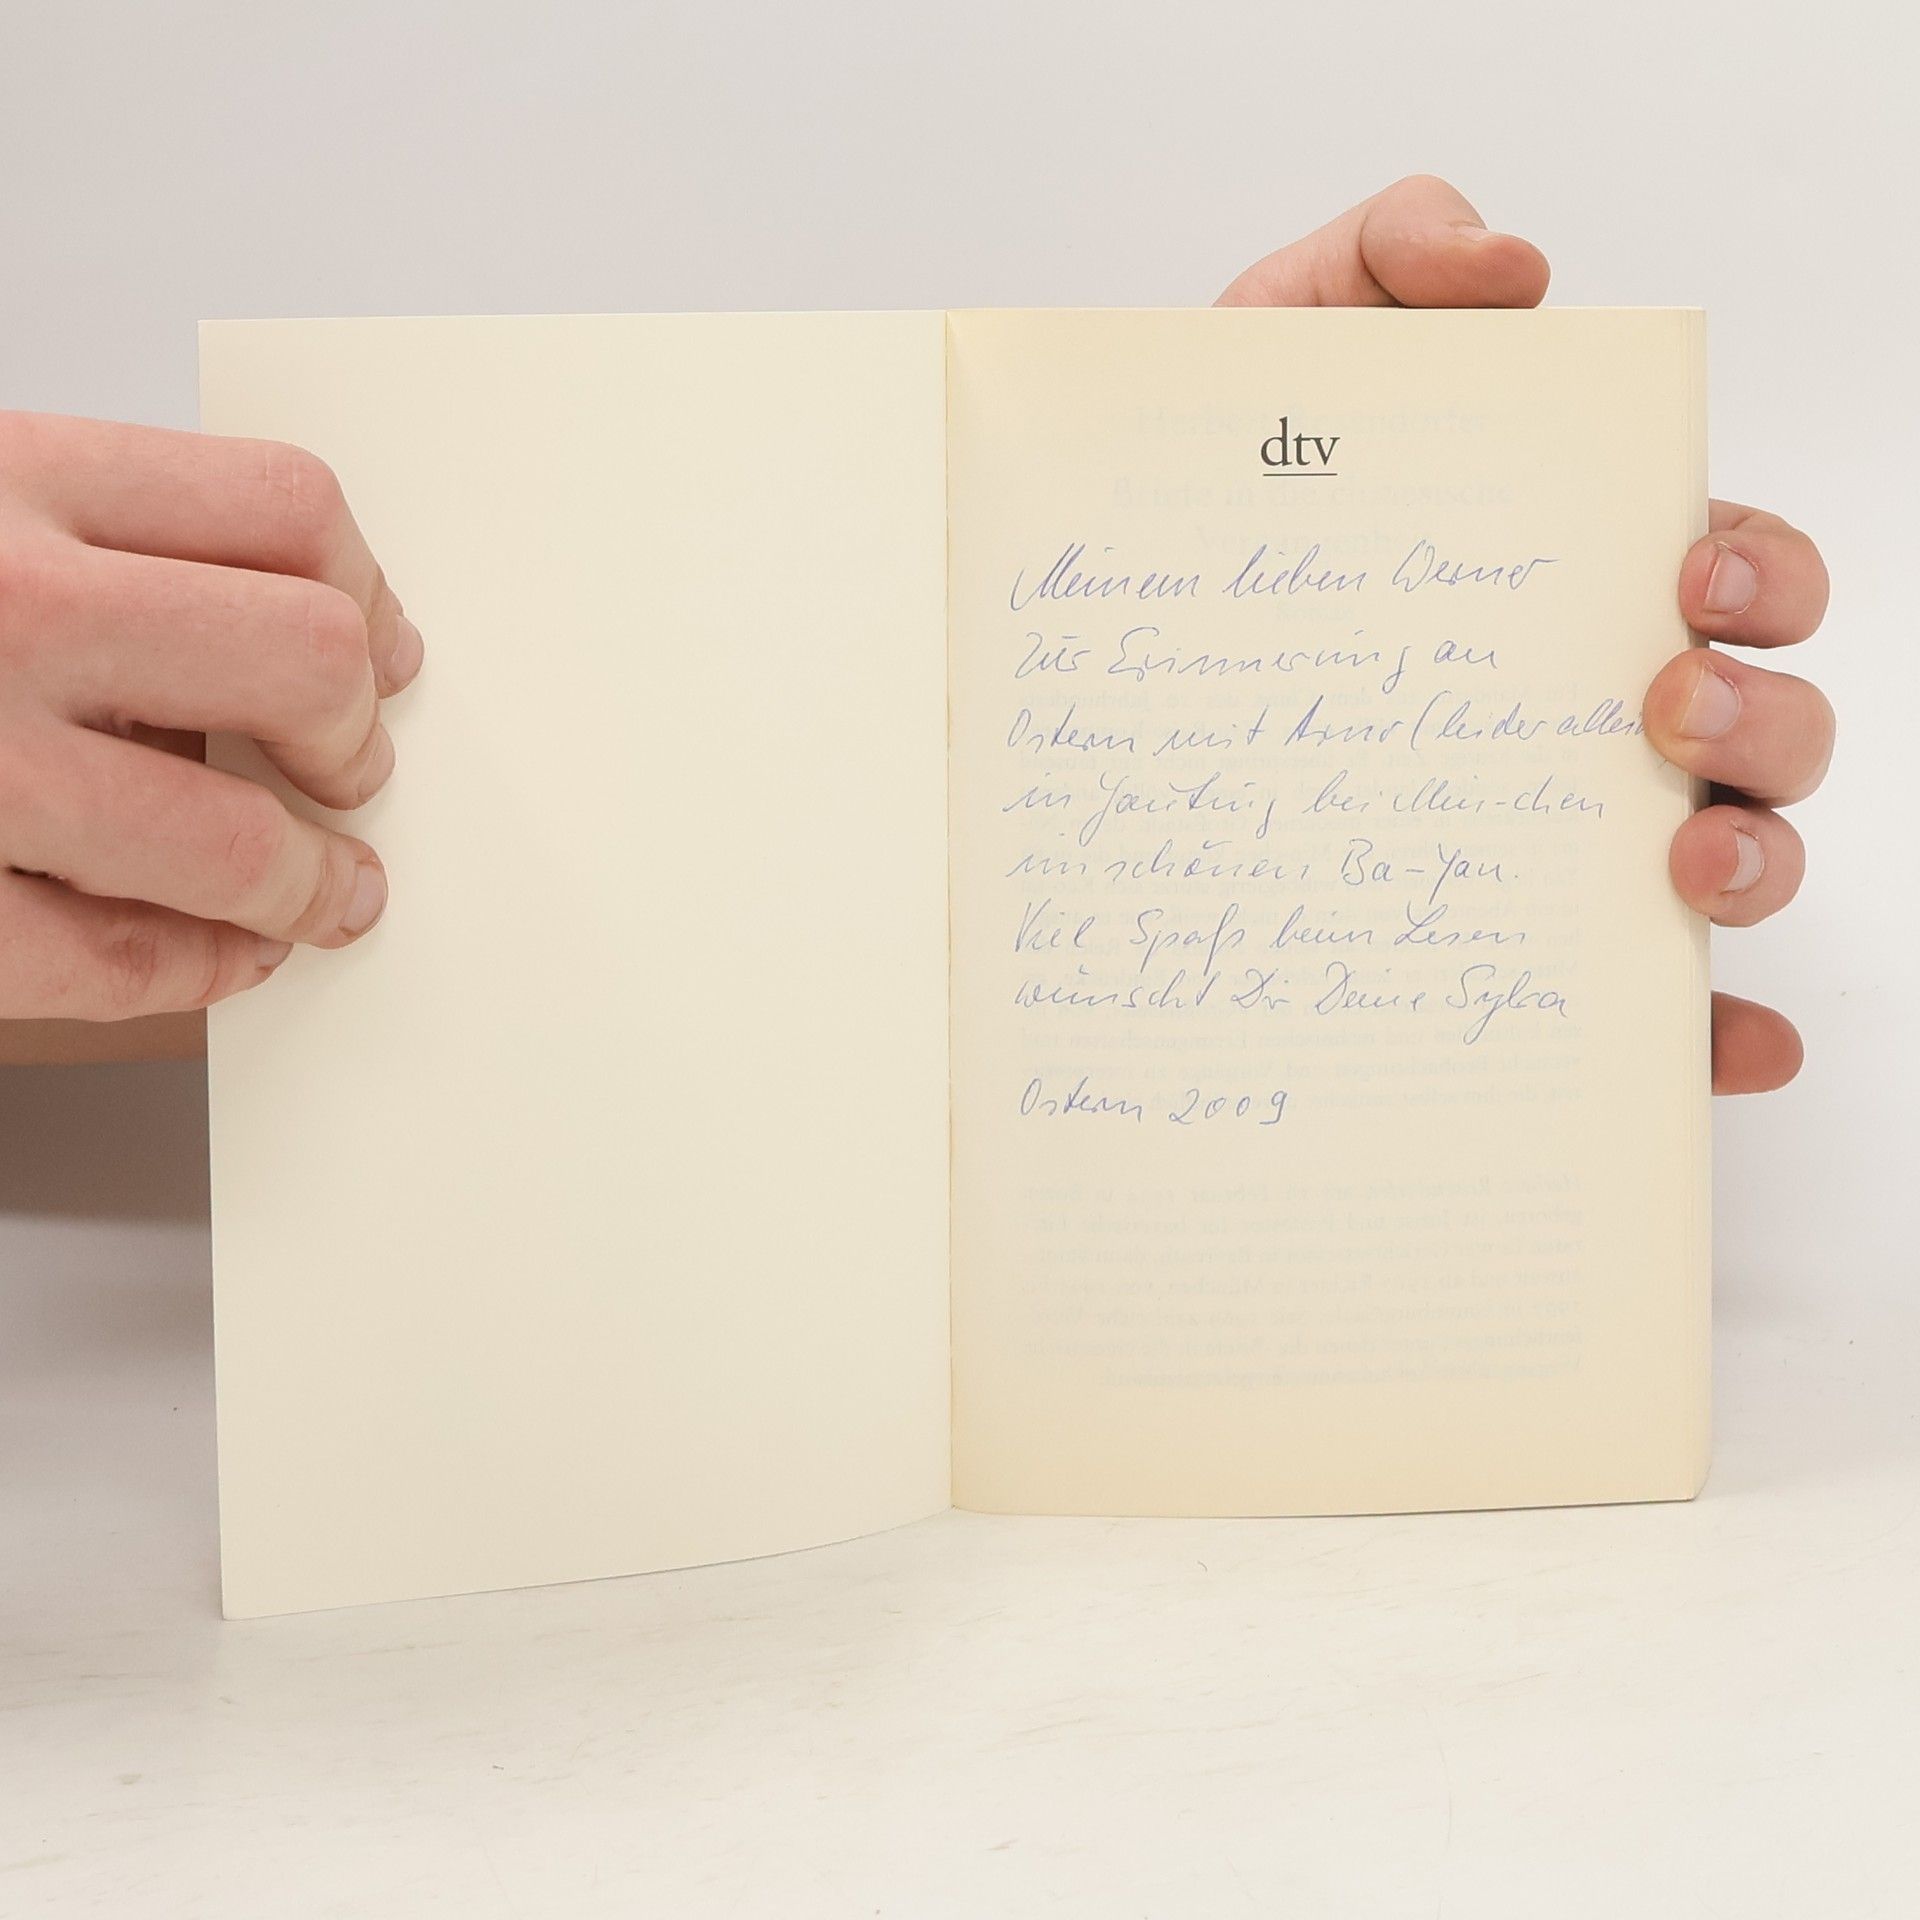 dtv
Meinem lieben Werner
zur Erinnerung an
Ostern mit Arno (leider allein
in Gauting bei Min-chen
im schönen Ba-Yan.
Viel Spaß beim Lesen
wünscht Dir Deine Sylva
Ostern 2009